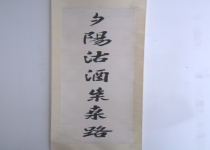 夕陽沽酒朱桑路